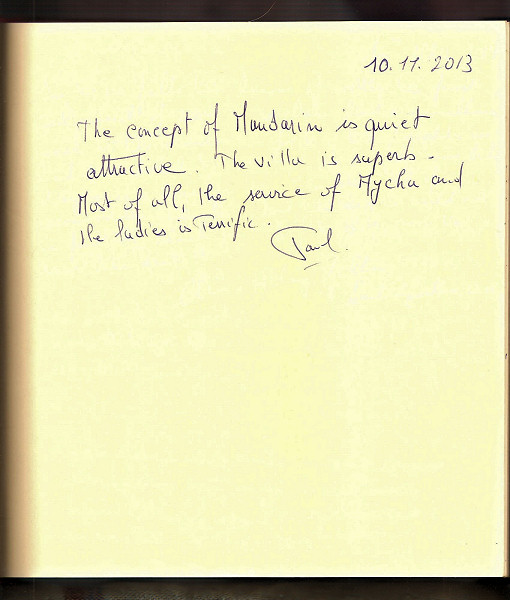 10.11.2013
The concept of Mandarin is quiet
attractive. The villa is superb.
Most of all, the service of Mycha and
the ladies is Terrific.
Paul.